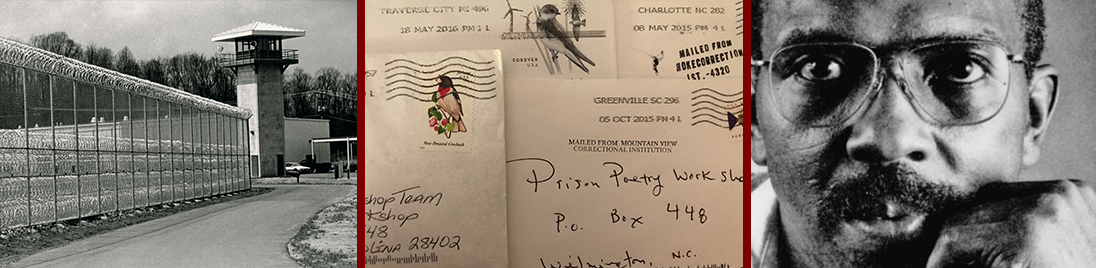 TRAVERSE CITY MI 496
18 MAY 2016 PM 4 L
FOREVER USA
CHARLOTTE NC 282
08 MAY 2015 PM 4 L
MAILED FROM
HOKECORRECTION
IST.-4320
Rose-Breasted Grosbeak
shop Team
kshop
48
olina 28402
GREENVILLE SC 296
05 OCT 2015 PM 4 L
MAILED FROM MOUNTAIN VIEW
CORRECTIONAL INSTITUTION
Prison Poetry Work Sho
P.O. Box 448
Wilmington, N.C.